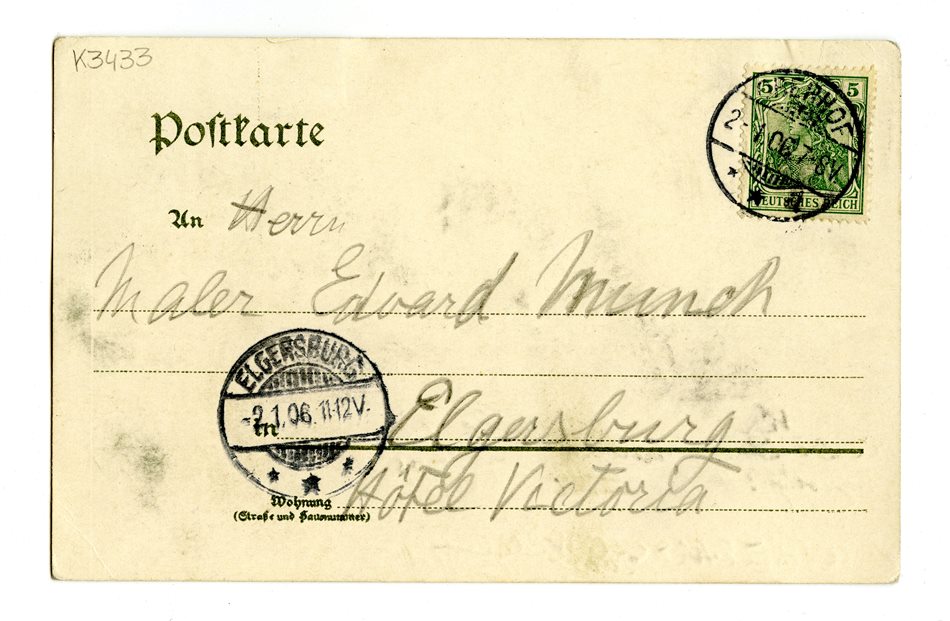 K3433
5 5
OBERHOF
2-1.06.7-8V.
DEUTSCHES REICH
Postkarte
An Herrn
Maler Edvard Munch
ELGERSBURG
-2.1.06.11-12V.
in Elgersburg
Hôtel Victoria
Wohnung
(Straße und Hausnummer)